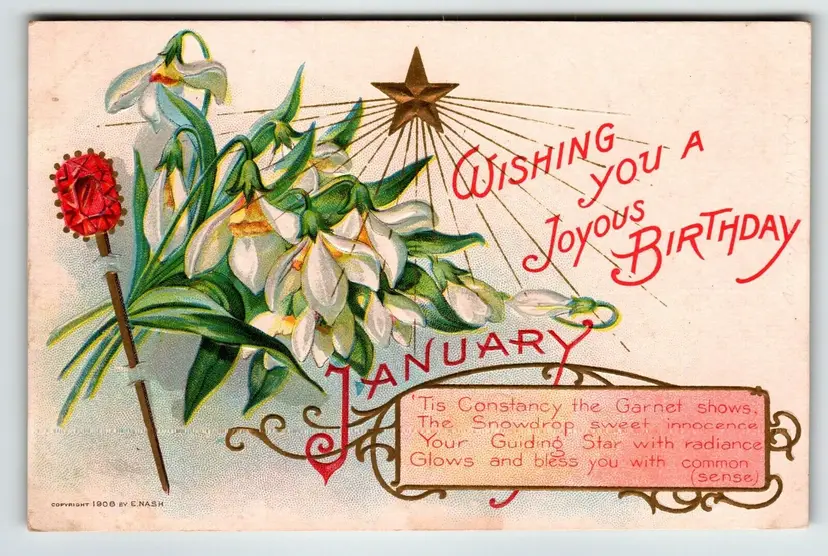 Wishing
you a
Joyous
Birthday
January
'Tis Constancy the Garnet shows,
The Snowdrop sweet innocence
Your Guiding Star with radiance
Glows and bless you with common
(sense)
COPYRIGHT 1908 BY E. NASH